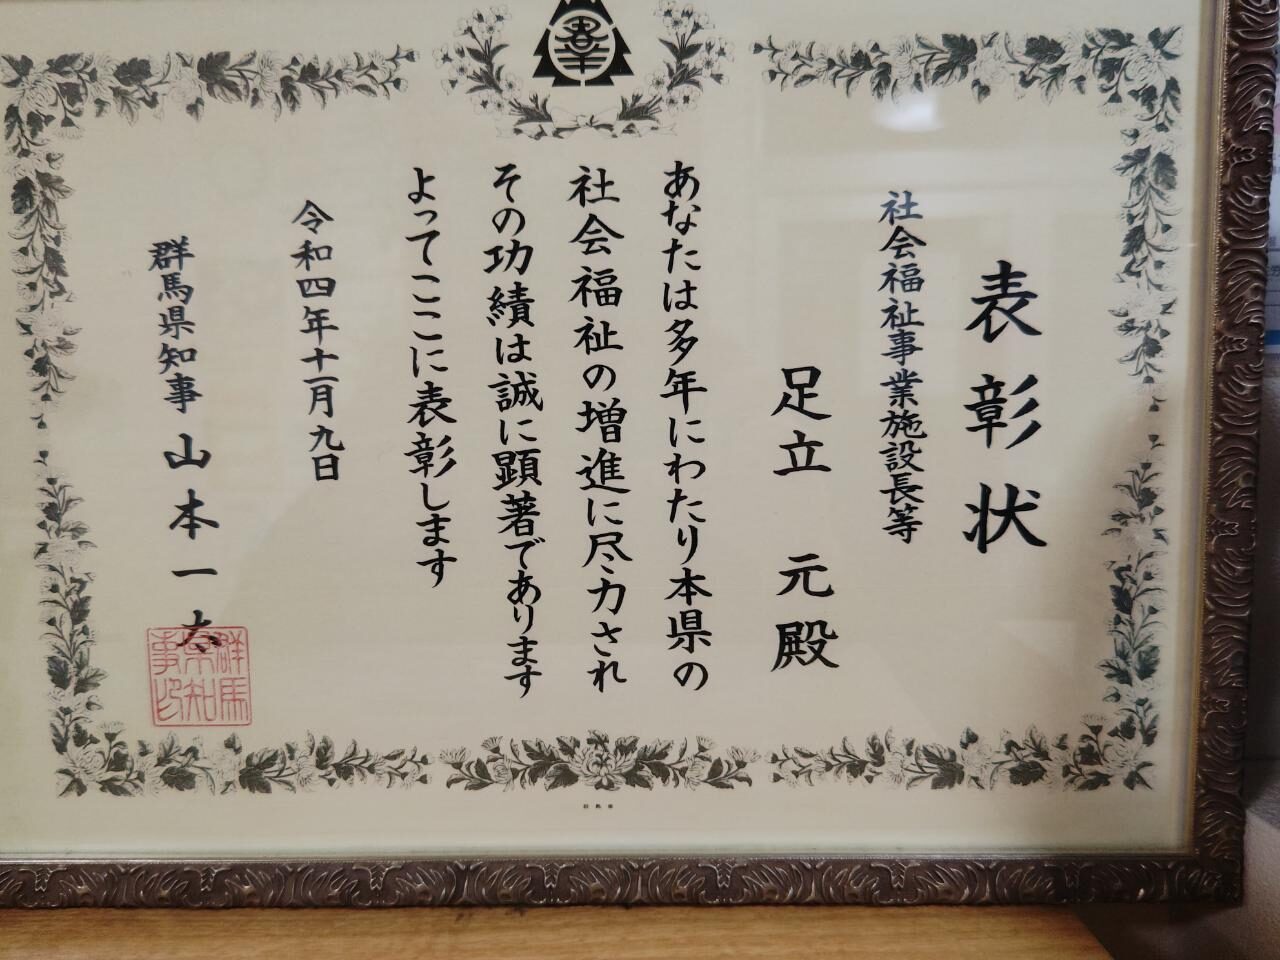 表彰状
社会福祉事業施設長等
足立 元殿
あなたは多年にわたり本県の
社会福祉の増進に尽力され
その功績は誠に顕著であります
よってここに表彰します
令和四年十一月九日
群馬県知事 山本一太
群馬県知事印
群馬県